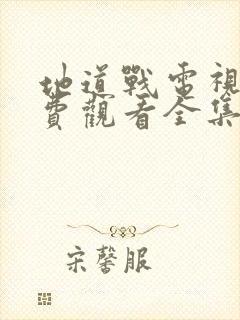 地道戰電視
費觀看全集
宋馨服